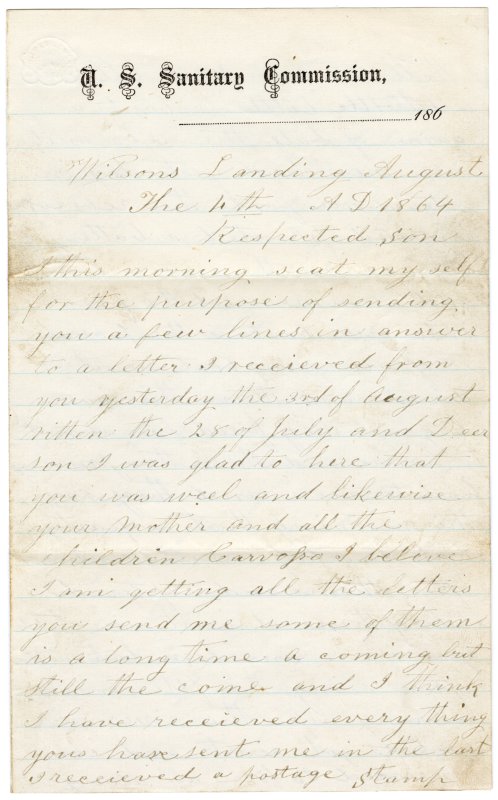 U. S. Sanitary Commission,
186
Wilsons Landing August
The 4th A D 1864
Respected Son
I this morning seat my self
for the purpose of sending
you a few lines in answer
to a letter I receieved from
you yesterday the 3rd of August
ritten the 28 of July and Deer
son I was glad to here that
you was well and likewise
your Mother and all the
children Carvosso I beleve
I am getting all the letters
you send me some of them
is a long time a coming but
still the come and I think
I have receieved every thing
yous have sent me in the last
I receieved a postage stamp